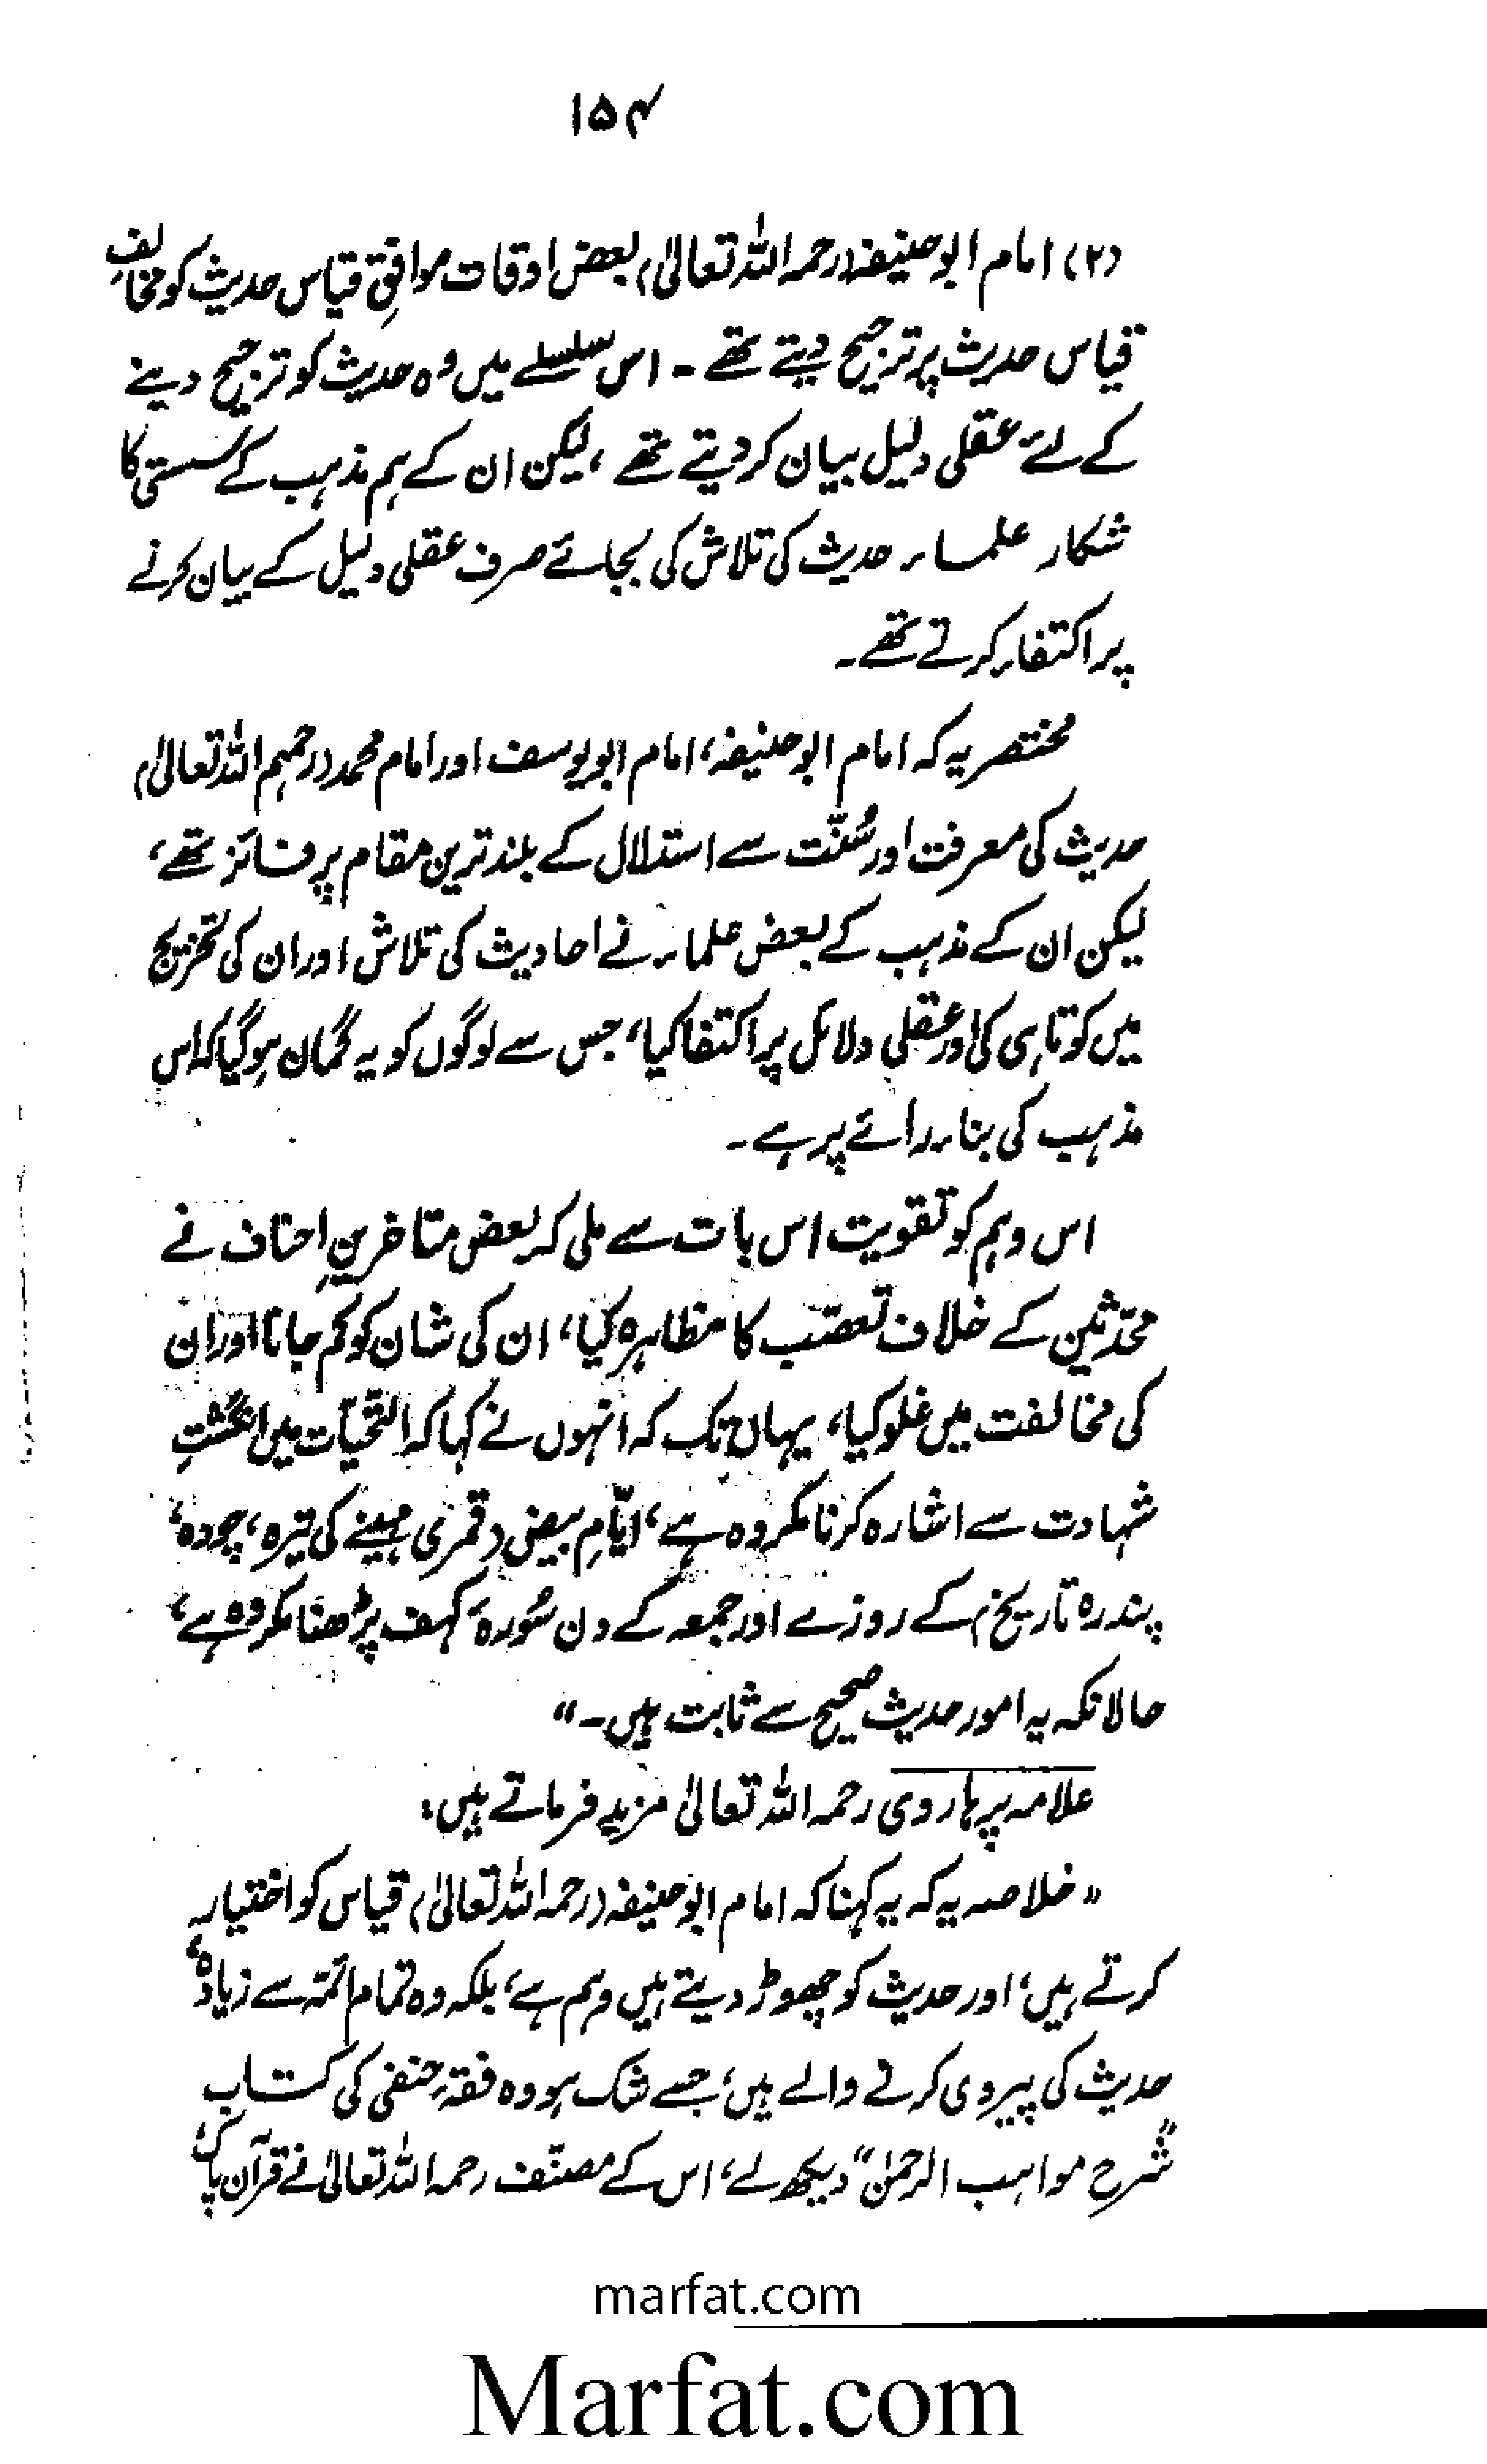 ۱۵۴
(۲) امام ابوحنیفہ (رحمہ اللہ تعالیٰ) بعض اوقات موافقِ قیاس حدیث کو مخالفِ
قیاس حدیث پر ترجیح دیتے تھے ۔ اس سلسلے میں وہ حدیث کو ترجیح دینے
کے لئے عقلی دلیل بیان کر دیتے تھے ، لیکن ان کے ہم مذہب کے سستی کا
شکار علماء حدیث کی تلاش کی بجائے صرف عقلی دلیل کے بیان کرنے
پر اکتفاء کرتے تھے ۔
مختصر یہ کہ امام ابوحنیفہ، امام ابویوسف اور امام محمد (رحمہم اللہ تعالیٰ)
حدیث کی معرفت اور سُنّت سے استدلال کے بلند ترین مقام پر فائز تھے،
لیکن ان کے مذہب کے بعض علماء نے احادیث کی تلاش اور ان کی تخریج
میں کوتاہی کی اور عقلی دلائل پر اکتفا کیا، جس سے لوگوں کو یہ گمان ہو گیا کہ اس
مذہب کی بناء رائے پر ہے ۔
اس وہم کو تقویت اس بات سے ملی کہ بعض متاخرینِ احناف نے
محدّثین کے خلاف تعصّب کا مظاہرہ کیا، ان کی شان کو کم جانا اور ان
کی مخالفت میں غلو کیا، یہاں تک کہ انہوں نے کہا کہ التحیّات میں انگشتِ
شہادت سے اشارہ کرنا مکروہ ہے، ایّامِ بیض (قمری مہینے کی تیرہ، چودہ،
پندرہ تاریخ) کے روزے اور جمعہ کے دن سُورۂ کہف پڑھنا مکروہ ہے،
حالانکہ یہ امور حدیث صحیح سے ثابت ہیں ۔"
علامہ پرہاروی رحمہ اللہ تعالیٰ مزید فرماتے ہیں:
"خلاصہ یہ کہ یہ کہنا کہ امام ابوحنیفہ (رحمہ اللہ تعالیٰ) قیاس کو اختیار
کرتے ہیں، اور حدیث کو چھوڑ دیتے ہیں وہم ہے، بلکہ وہ تمام ائمّہ سے زیادہ،
حدیث کی پیروی کرنے والے ہیں، جسے شک ہو وہ فقہِ حنفی کی کتاب
"شرحِ مواہب الرحمٰن" دیکھ لے، اس کے مصنّف رحمہ اللہ تعالیٰ نے قرآن پاک،
marfat.com
Marfat.com